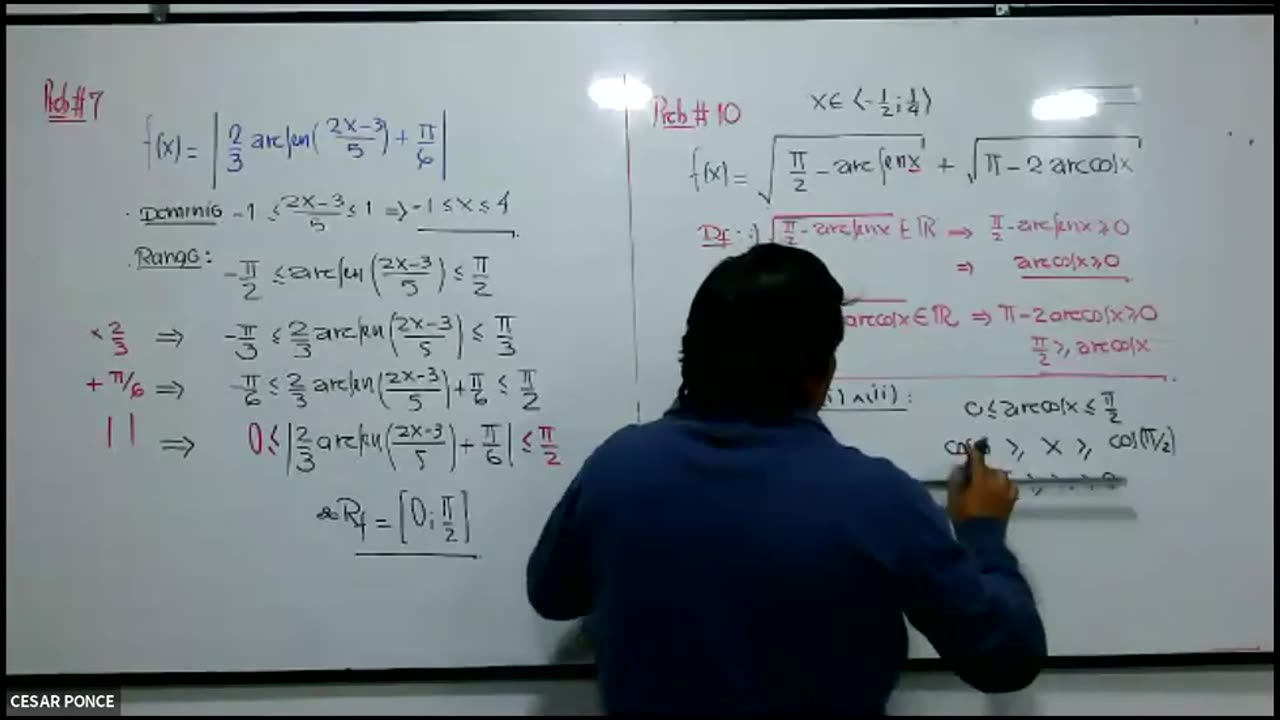 Prob#7
f(x) = | 2/3 arcsen( (2x-3)/5 ) + π/6 |
· Dominio -1 ≤ (2x-3)/5 ≤ 1 ⇒ -1 ≤ x ≤ 4
· Rango:
-π/2 ≤ arcsen( (2x-3)/5 ) ≤ π/2
× 2/3 ⇒ -π/3 ≤ 2/3 arcsen( (2x-3)/5 ) ≤ π/3
+ π/6 ⇒ -π/6 ≤ 2/3 arcsen( (2x-3)/5 ) + π/6 ≤ π/2
| | ⇒ 0 ≤ | 2/3 arcsen( (2x-3)/5 ) + π/6 | ≤ π/2
∴ Rf = [0; π/2]
Prob #10
x ∈ ⟨-1/2; 1/4⟩
f(x) = √(π/2 - arcsenx) + √(π - 2 arccosx)
Df: i) √(π/2 - arcsenx) ∈ ℝ ⇒ π/2 - arcsenx ≥ 0
⇒ arccosx ≥ 0
arccosx ∈ ℝ ⇒ π - 2 arccosx ≥ 0
π/2 ≥ arccosx
i) ∧ (ii):
0 ≤ arccosx ≤ π/2
≥ x ≥ cos(π/2)
CESAR PONCE